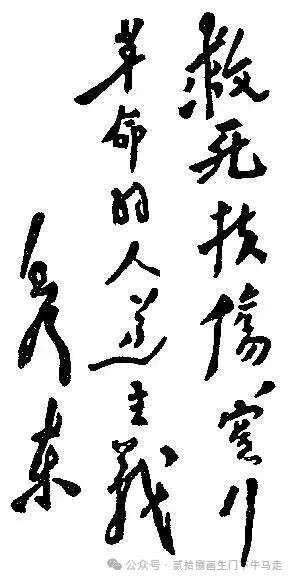 救死扶傷實行
革命的人道主義
毛澤東
公众号 · 贰拾捌画生门下牛马走